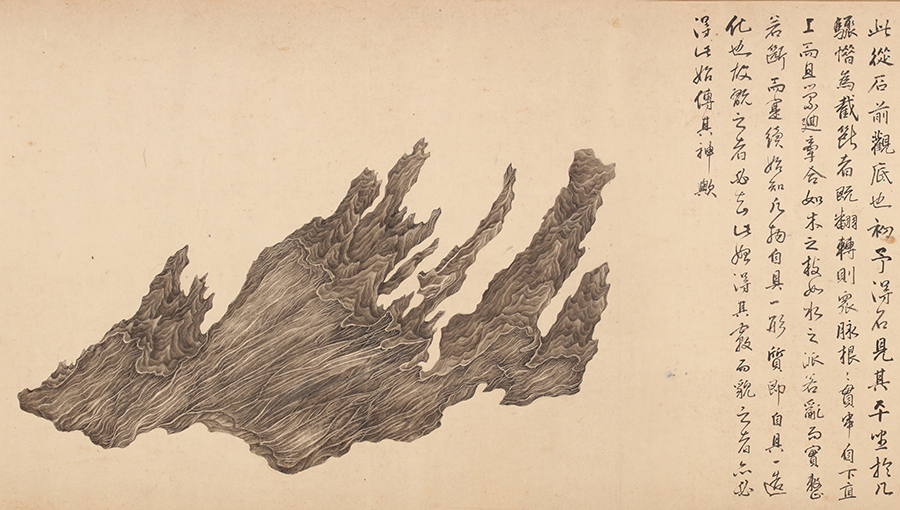 此從石前觀底也初予得石見其平坐於几
驟為截斷者既翻轉則眾脉根〻貫串自下直
上而且縈迴牽合如木之枝如水之派若亂而實整
若斷而寔續始知凡物自具一形質即自具一造
化也故之者必此始得其而貌之者亦必
得此始傳其神歟